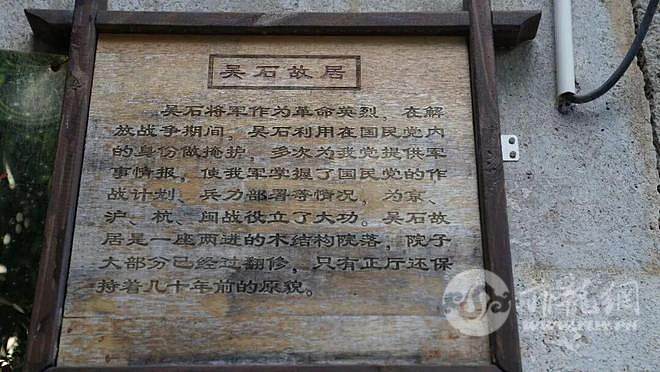 吴石故居
吴石将军作为革命英烈，在解
放战争期间，吴石利用在国民党内
的身份做掩护，多次为我党提供军
事情报，使我军掌握了国民党的作
战计划、兵力部署等情况，为京、
沪、杭、闽战役立了大功。吴石故
居是一座两进的木结构院落，院子
大部分已经过翻修，只有正厅还保
持着几十年前的原貌。